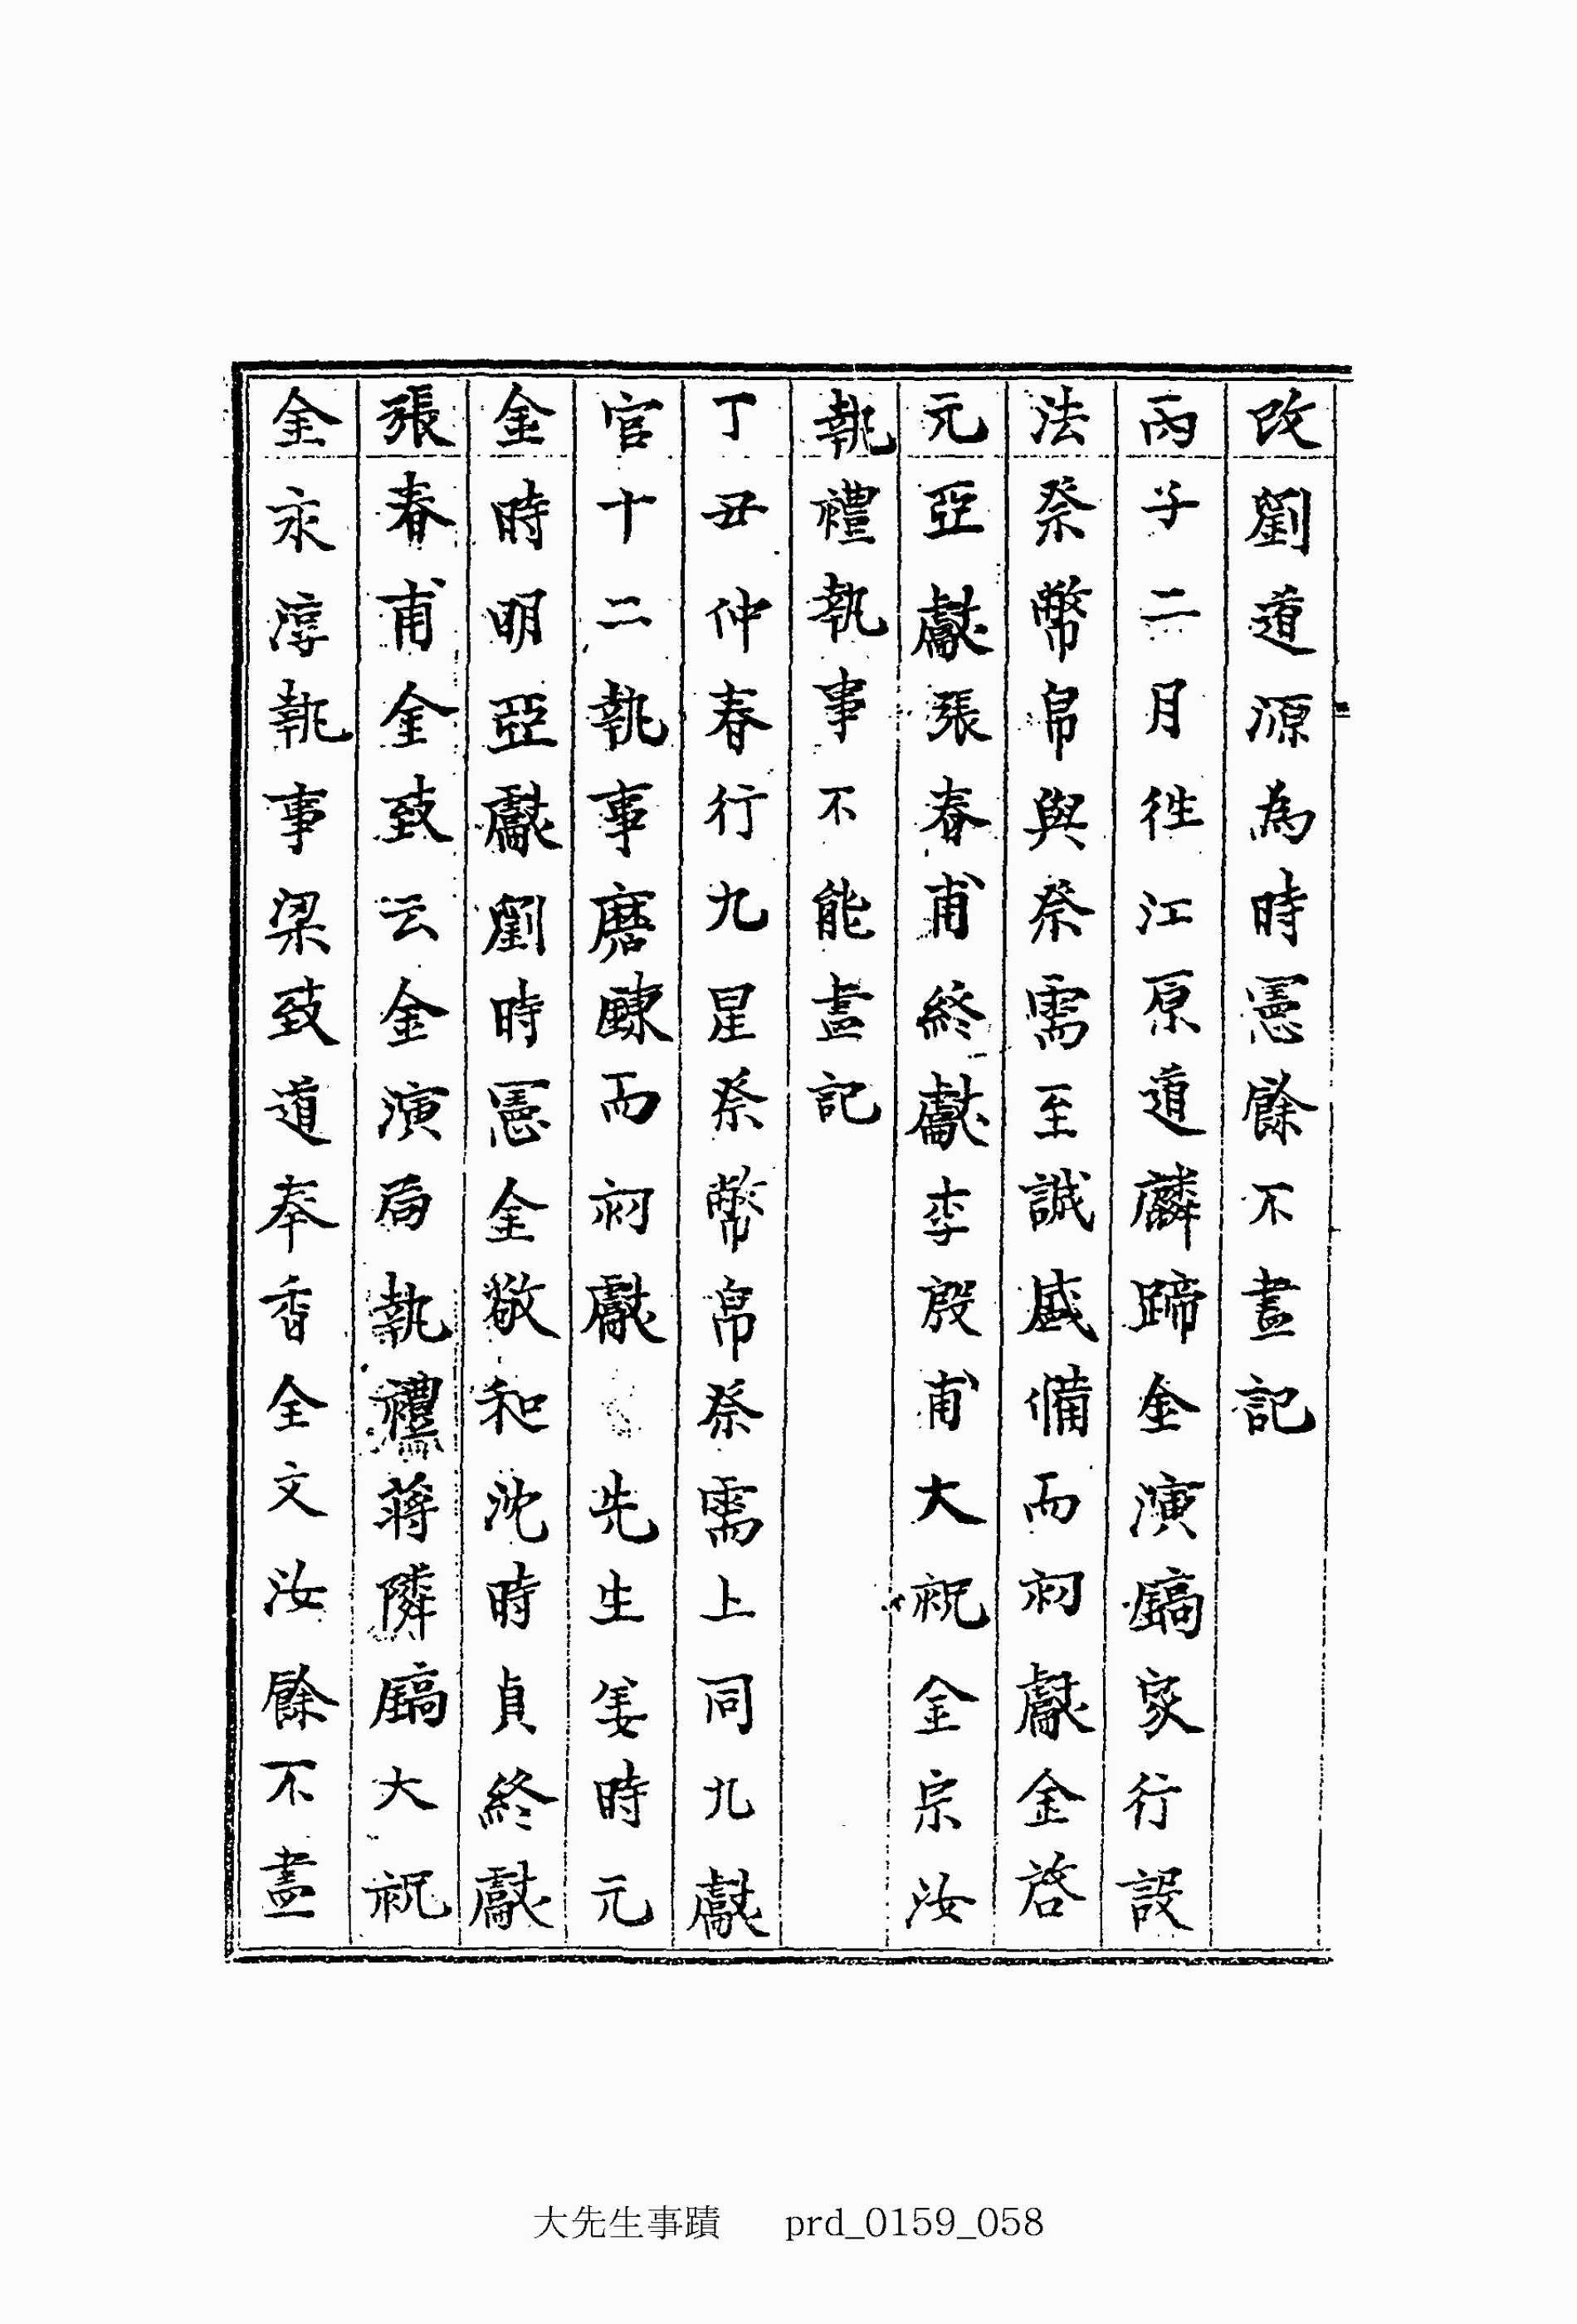 改劉道源為時憲餘不盡記
丙子二月往江原道麟蹄金演鎬家行設
法祭幣帛與祭需至誠盛備而初獻金啓
元亞獻張春甫終獻李殷甫大祝金宗汝
執禮執事不能盡記
丁丑仲春行九星祭幣帛祭需上同九獻
官十二執事磨鍊而初獻 先生姜時元
金時明亞獻劉時憲金敬和沈時貞終獻
張春甫金致云金演局執禮蔣隣鎬大祝
金永淳執事梁致道奉香全文汝餘不盡
大先生事蹟 prd_0159_058